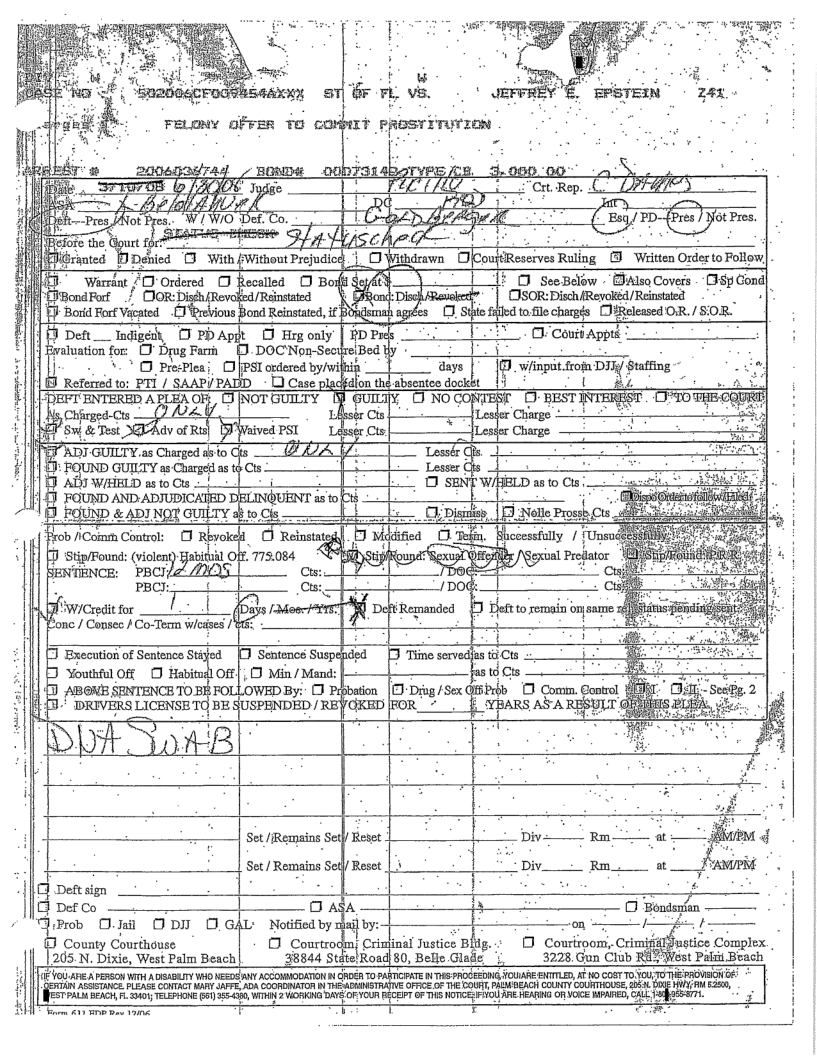 DIV W W
CASE NO 502006CF009454AXXX ST OF FL VS. JEFFREY E. EPSTEIN Z41
FELONY OFFER TO COMMIT PROSTITUTION
ARREST # 2006036744 / BOND# TYPE/CB 3,000.00
Date 6/30/08 Judge Crt. Rep.
ASA L Belohlavek DC Int
Deft - Pres / Not Pres. W / W/O Def. Co. Goldberger Esq / PD - Pres / Not Pres.
Before the Court for: Status check
Granted Denied With / Without Prejudice Withdrawn Court Reserves Ruling Written Order to Follow
Warrant / Ordered Recalled Bond Set at $ See Below Also Covers Sp Cond
Bond Forf OR: Disch / Revoked / Reinstated Bond: Disch / Revoked SOR: Disch / Revoked / Reinstated
Bond Forf Vacated Previous Bond Reinstated, if Bondsman agrees State failed to file charges Released O.R. / S.O.R.
Deft Indigent PD Appt Hrg only PD Pres Court Appts
Evaluation for: Drug Farm DOC Non-Secure Bed by
Pre-Plea PSI ordered by/within days w/input from DJJ / Staffing
Referred to: PTI / SAAP / PADD Case placed on the absentee docket
DEFT ENTERED A PLEA OF: NOT GUILTY GUILTY NO CONTEST BEST INTEREST TO THE COURT
As Charged-Cts ONLY Lesser Cts Lesser Charge
Sw & Test Adv of Rts Waived PSI Lesser Cts Lesser Charge
ADJ GUILTY as Charged as to Cts ONLY Lesser Cts
FOUND GUILTY as Charged as to Cts Lesser Cts
ADJ W/HELD as to Cts SENT W/HELD as to Cts
FOUND AND ADJUDICATED DELINQUENT as to Cts Dispo Order to follow / Filed
FOUND & ADJ NOT GUILTY as to Cts Dismiss Nolle Prosse Cts
Prob / Comm Control: Revoked Reinstated Modified Term. Successfully / Unsuccessfully
Stip/Found: (violent) Habitual Off. 775.084 Stip/Found: Sexual Offender / Sexual Predator Stip/Found: P.R.R.
SENTENCE: PBCJ: 12 mos Cts: / DOC: Cts:
PBCJ: Cts: / DOC: Cts:
W/Credit for 1 Days / Mos. / Yrs. Deft Remanded Deft to remain on same rel. status pending sent.
Conc / Consec / Co-Term w/cases / cts:
Execution of Sentence Stayed Sentence Suspended Time served as to Cts
Youthful Off Habitual Off Min / Mand: as to Cts
ABOVE SENTENCE TO BE FOLLOWED By: Probation Drug / Sex Off Prob Comm. Control I II - See Pg. 2
DRIVERS LICENSE TO BE SUSPENDED / REVOKED FOR YEARS AS A RESULT OF THIS PLEA
DNA SWAB
Set / Remains Set / Reset Div Rm at AM/PM
Set / Remains Set / Reset Div Rm at AM/PM
Deft sign
Def Co ASA Bondsman
Prob Jail DJJ GAL Notified by mail by: on / /
County Courthouse Courtroom, Criminal Justice Bldg. Courtroom, Criminal Justice Complex
205 N. Dixie, West Palm Beach 38844 State Road 80, Belle Glade 3228 Gun Club Rd., West Palm Beach
IF YOU ARE A PERSON WITH A DISABILITY WHO NEEDS ANY ACCOMMODATION IN ORDER TO PARTICIPATE IN THIS PROCEEDING, YOU ARE ENTITLED, AT NO COST TO YOU, TO THE PROVISION OF
CERTAIN ASSISTANCE. PLEASE CONTACT MARY JAFFE, ADA COORDINATOR IN THE ADMINISTRATIVE OFFICE OF THE COURT, PALM BEACH COUNTY COURTHOUSE, 205 N. DIXIE HWY, RM 5.2500,
WEST PALM BEACH, FL 33401; TELEPHONE (561) 355-4380, WITHIN 2 WORKING DAYS OF YOUR RECEIPT OF THIS NOTICE; IF YOU ARE HEARING OR VOICE IMPAIRED, CALL 1-800-955-8771.
Form 611 EDP Rev 12/06